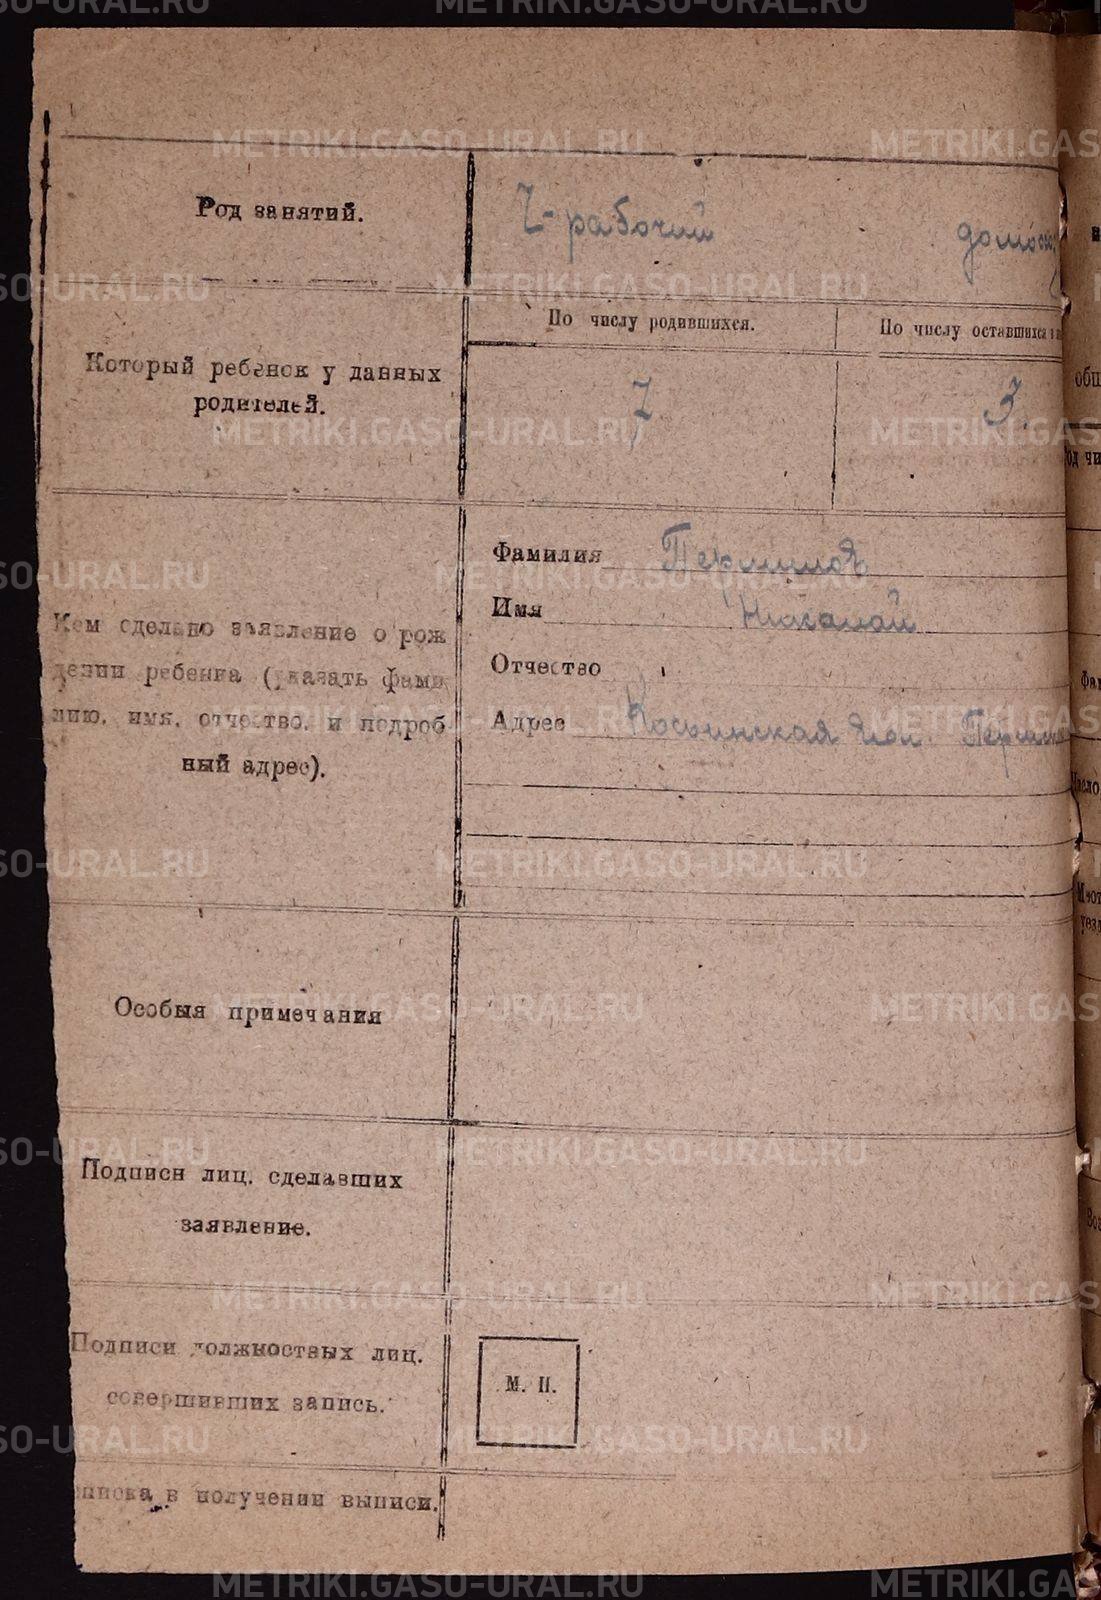 Род занятий.
Ч-рабочий
домохоз
По числу родившихся.
По числу оставшихся в
Который ребенок у данных
родителей.
7
3.
Фамилия Перминов
Имя Николай
Отчество
Адрес Косьинская
Кем сделано заявление о рож
дении ребенка (указать фами
лию, имя, отчество, и подроб
ный адрес).
Особыя примечания
Подписи лиц, сделавших
заявление.
Подписи должностных лиц,
совершивших запись.
М. П.
писка в получении выписи.
METRIKI.GASO-URAL.RU